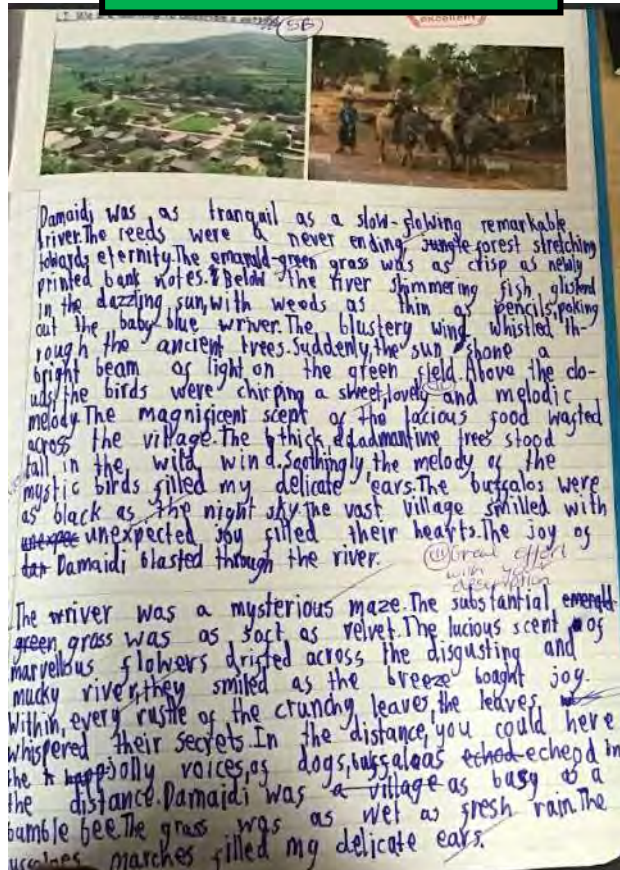 L.I. We are learning to describe a setting
SB
excellent
Damaidi was as tranquil as a slow-flowing remarkable
river.The reeds were a never ending jungle forest stretching
towards eternity.The emerald-green grass was as crisp as newly
printed bank notes. Below the river shimmering fish glistend
in the dazzling sun, with weeds as thin as pencils, poking
out the baby-blue wriver.The blustery wind whistled th-
rough the ancient trees.Suddenly, the sun shone a
bright beam of light on the green field. Above the clo-
uds, the birds were chirping a sweet, lovely and melodic
melody.The magnificent scept of the lacious food wafted
across the village.The thick, adadmantine trees stood
tall in the wild wind.Soothingly, the melody of the
mystic birds filled my delicate ears.The buffalos were
as black as the night sky.the vast village smilled with
unexpec unexpected joy filled their hearts.The joy of
dan Damaidi blasted through the river.
Great effort
with your
description
The wriver was a mysterious maze.The substantial emerald
green grass was as soft as velvet.The lucious scent of
marvellous flowers drifted across the disgusting and
mucky river, they smiled as the breeze bought joy.
Within, every rustle of the crunchy leaves, the leaves
whispered their secrets.In the distance, you could here
the happ jolly voices, of dogs, buffaloas echod echepd in
the distance.Damaidi was a village as busy as a
bumble bee.The grass was as wet as fresh rain.The
marches filled my delicate ears.